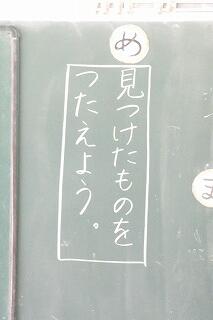 め
見つけたものを
つたえよう。
ま